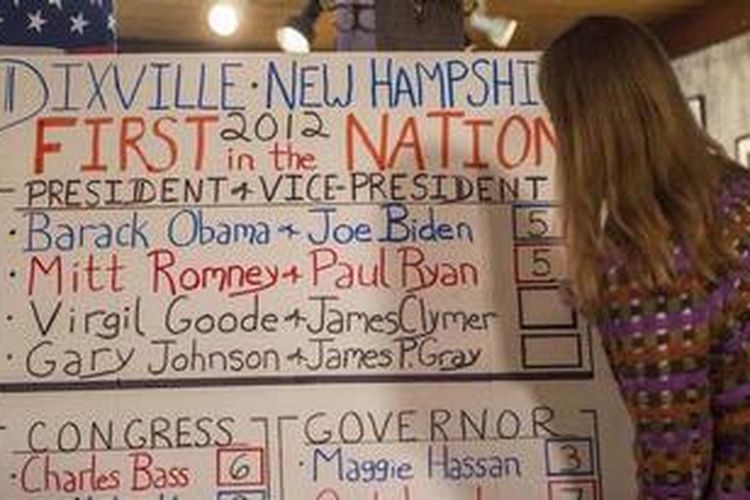 DIXVILLE · NEW HAMPSHI
FIRST 2012 in the NATION
PRESIDENT + VICE-PRESIDENT
· Barack Obama + Joe Biden 5
· Mitt Romney + Paul Ryan 5
· Virgil Goode + James Clymer
· Gary Johnson + James P. Gray
CONGRESS
· Charles Bass 6
GOVERNOR
· Maggie Hassan 3